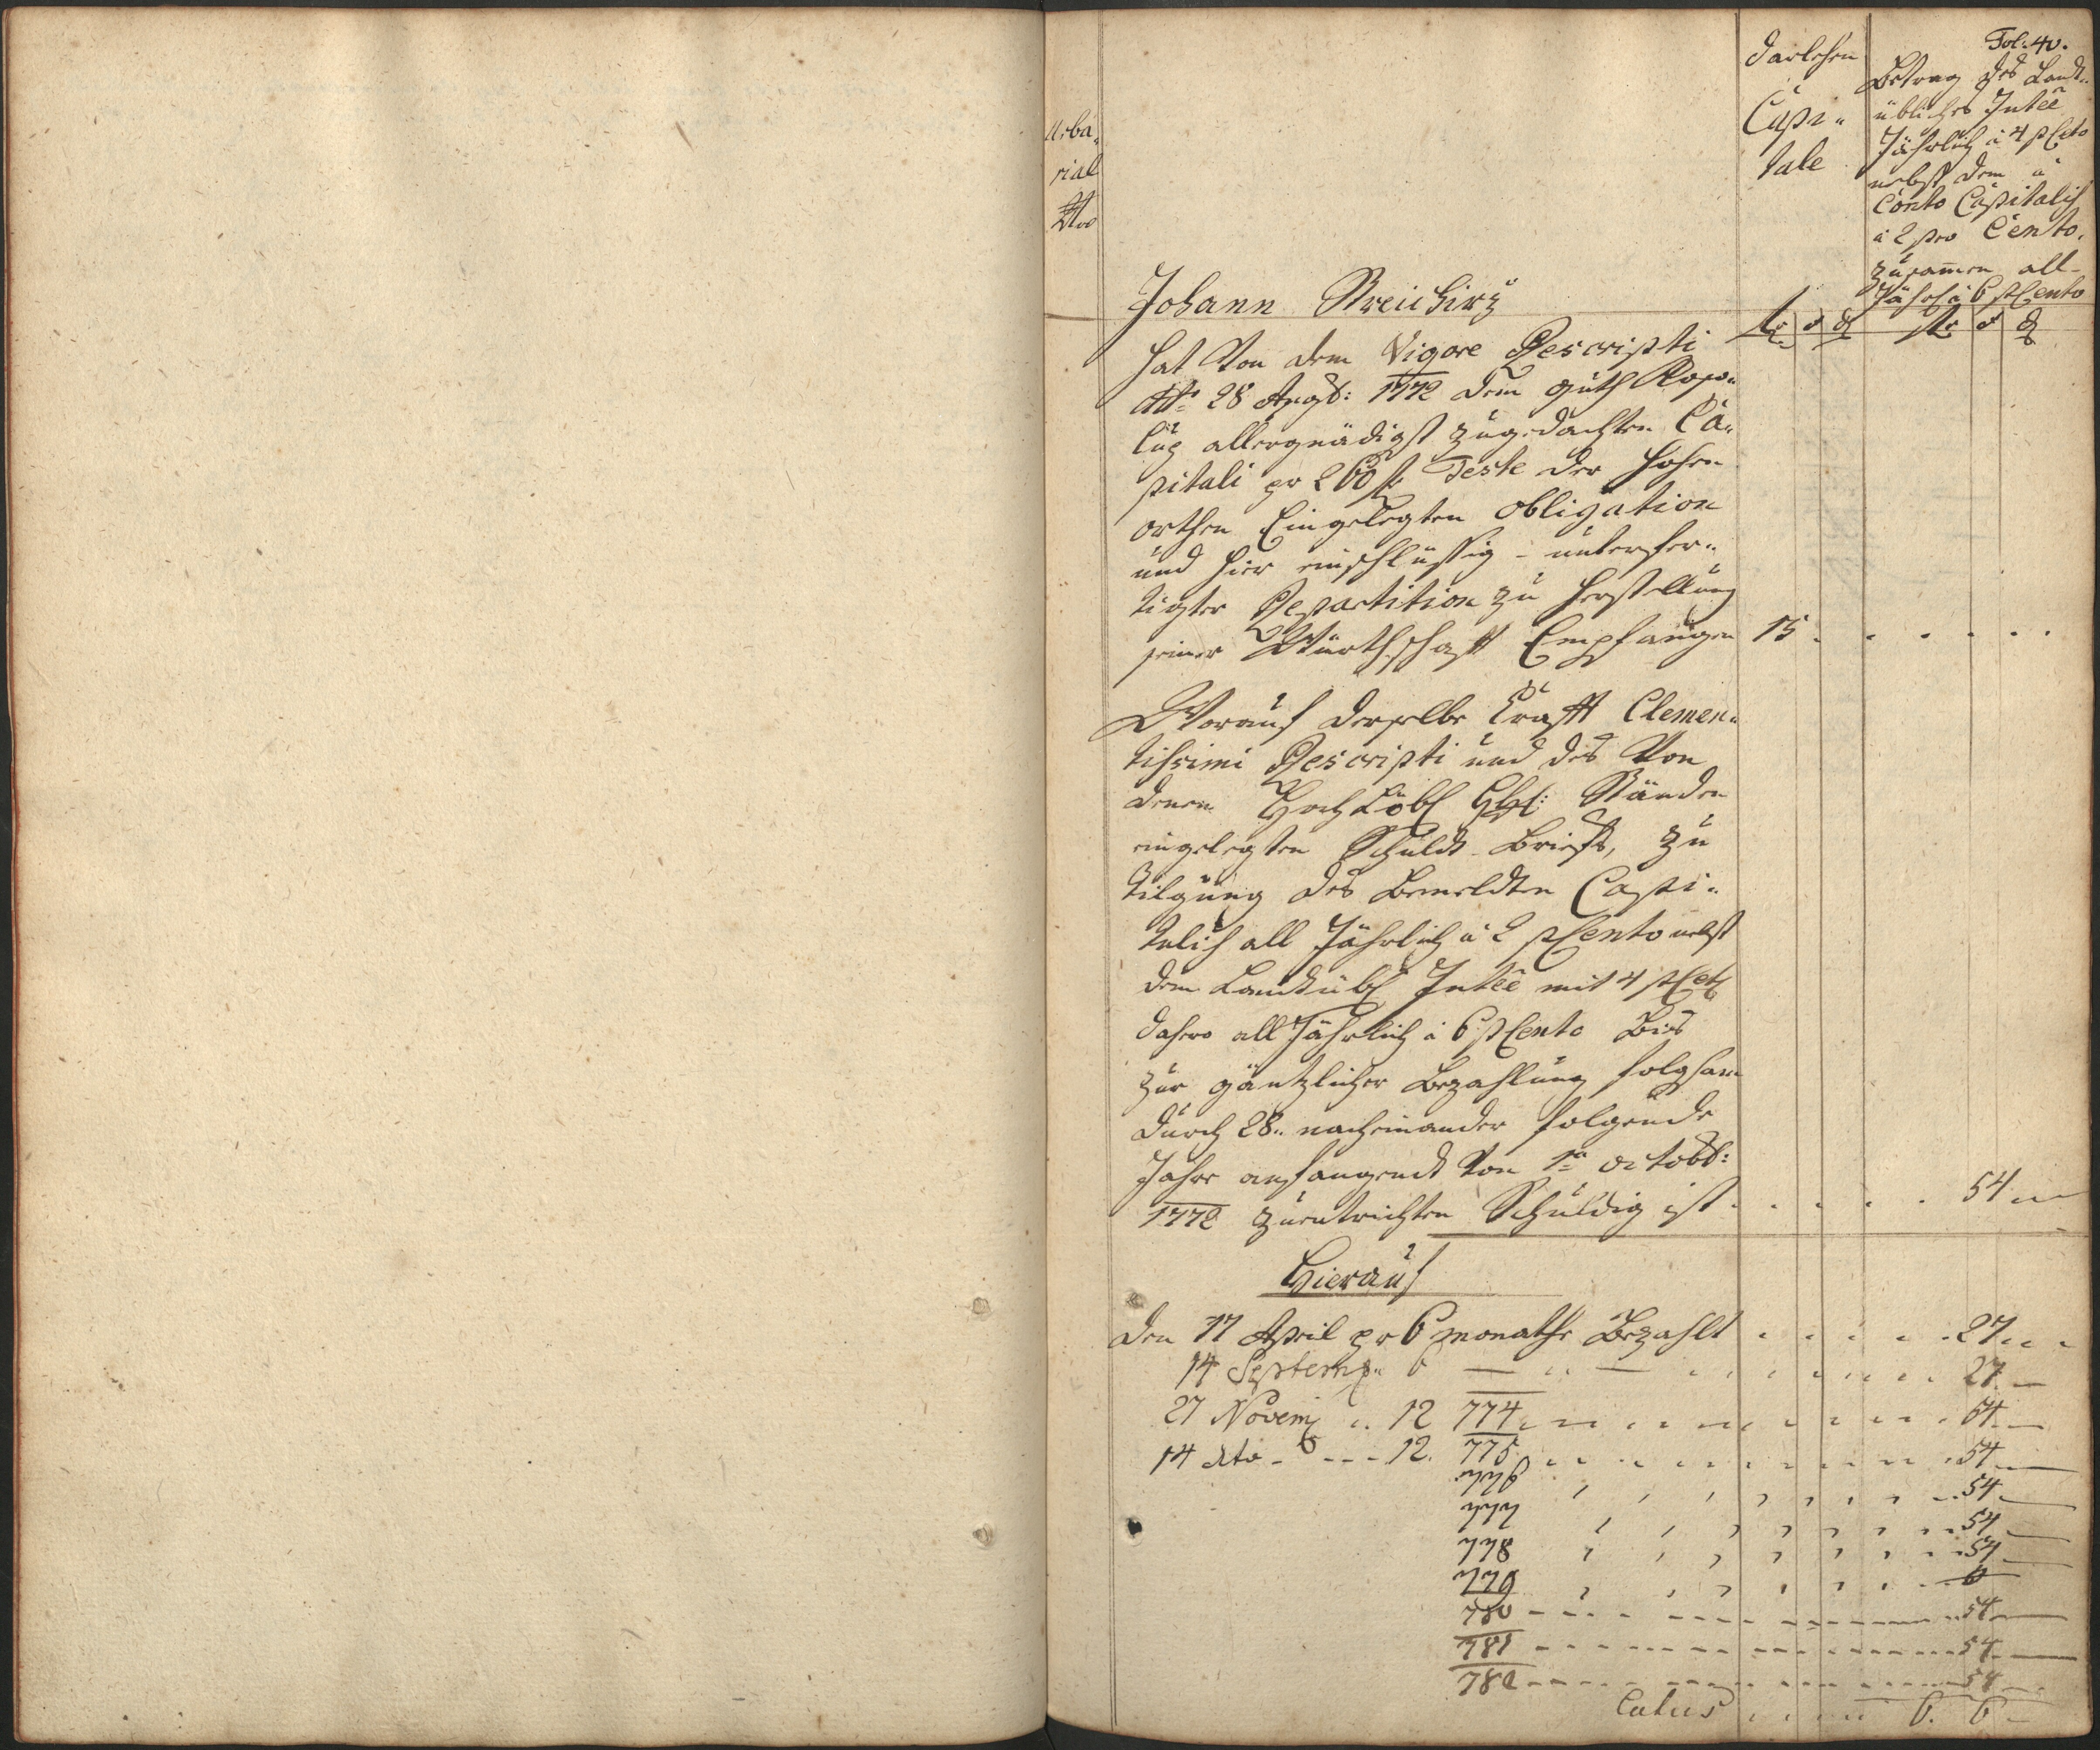 Fol: 40.
Urba„
rial
Nro
Darlehen
Capi„
tale
Betrag des Landt„
üblichen Inteê
Jährlich à 4 pCento
nebst dem à
Conto Capitalis
à 2 pro Cento.
Zusamen all-
Jährl à 6 pCento
Johann
fr x ₰ fr x ₰
hat Von dem Vigore Rescripti
dtto 28 Augst: 1772 dem guth
allergnädigst zugedachten Ca„
pitali pr 260 f Teste der hohen
orthen Eingelegten obligation
und hier einschlüssig - unterfer„
tigter Repartition zu herstellung
seiner Würthschaft Empfangen 15 . . . . . .
Worauf derselbe Krafft Clemen„
tissimi Rescripti und des Von
denen HochLöbl Ständen
eingelegten Schuldt-Briefs, zu
tilgung des Bemeldten Capi„
talis all Jährlich à 2 pCento nebst
dem Landtübl Inteê mit 4 pCet
dahero all Jährlich à 6 pCento Bis
zur gäntzlicher Bezahlung folgsam
durch 28„ nacheinander folgende
Jahre anfangendt Von 1ten octobr:
1772 zuentrichten Schuldig ist . . . . . 54 —
Hierauf
Den 17 April pr 6 monathe Bezahlt . . . . . 27 . .
14 Septemb„ 6 — „ — . . . . . 27 —
27 Novemb „ 12 774 . . . . . 54 —
14 dto - - - - 12. 775 . . . . . 54 —
776 , , , , , , 54 —
777 , , , , , , 54 —
778 , , , , , , 54 —
779 , , , , , ,
780 - - - - - - 54 —
781 - - - - - - 54 —
782 - - - - - - 54 —
Latus . . . . 6. 6 —